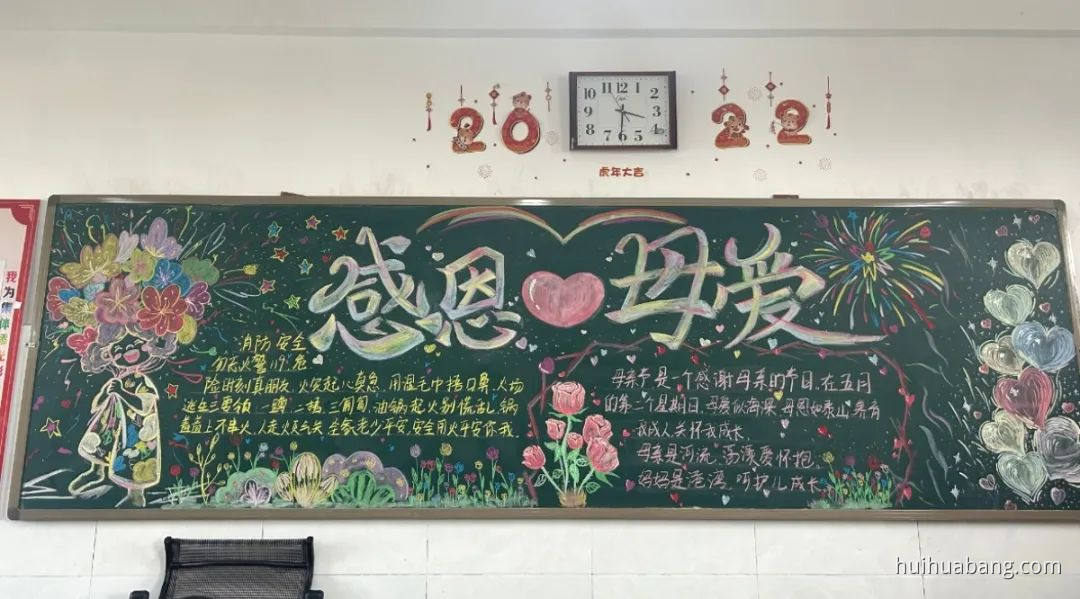 20 22
12 1 2 3 4 5 6 7 8 9 10 11
虎年大吉
我为集体
感恩母爱
消防安全
险时刻真朋友,火突起心莫急,用湿毛巾捂口鼻,火场
逃生三要领 一蹲 二捂 三匍匐 油锅起火别慌乱,锅
盖盖上不串火,人走火灭 关 全家老少平安,安全用火平安你我
母亲节是一个感谢母亲的节日,在五月
的第二个星期日,母爱似海深,母恩如泰山
我成人关怀我成长
母亲是河流,荡漾爱怀抱
妈妈是港湾,呵护儿成长
huihuabang.com